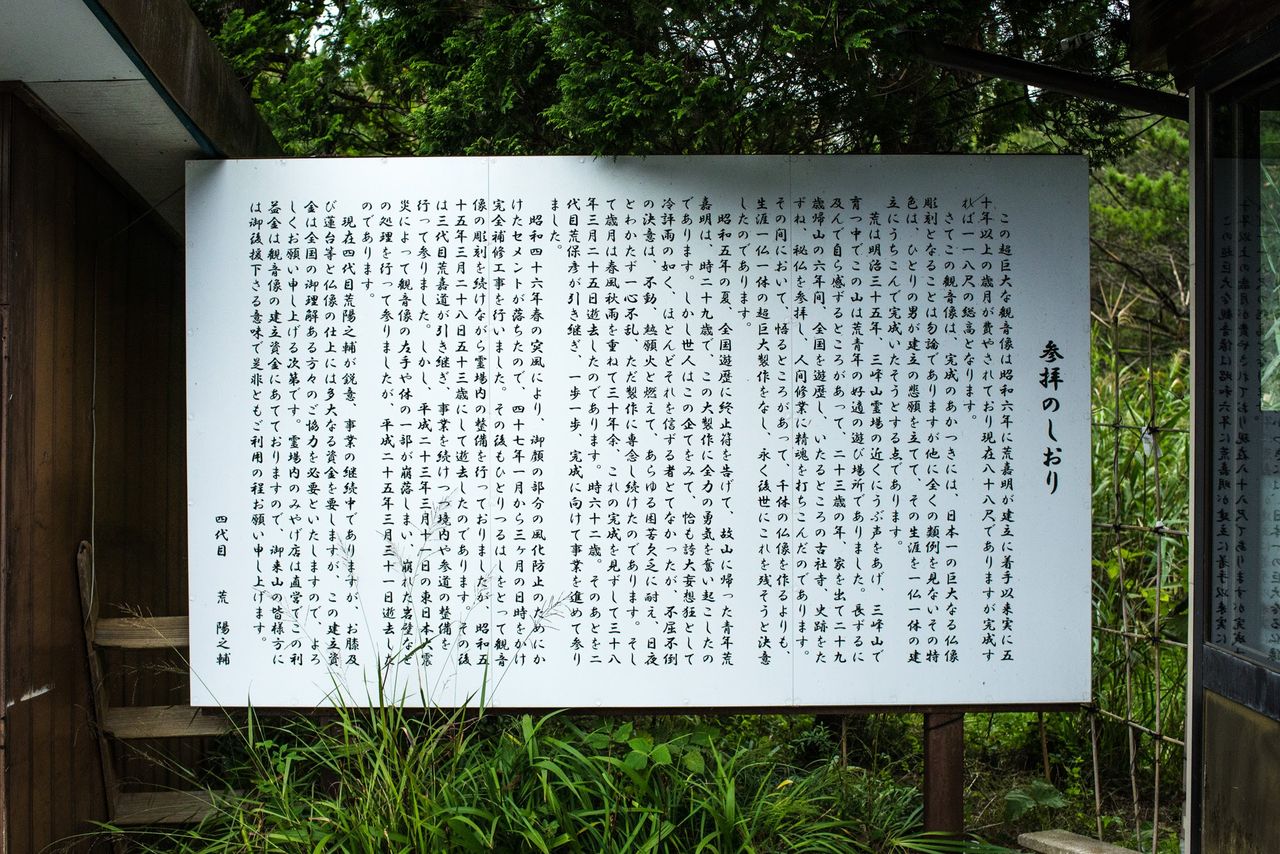 参拝のしおり
この超巨大な観音像は昭和六年に荒嘉明が建立に着手以来実に五
十年以上の歳月が費やされており現在八十八尺でありますが完成す
れば一一八尺の総高となります。
さてこの観音像は、完成のあかつきには、日本一の巨大なる仏像
彫刻となることは勿論でありますが他に全くの類例を見ないその特
色は、ひとりの男が建立の悲願を立て、その生涯を一仏一体の建
立にうちこんで完成いたそうとする点であります。
荒は明治三十五年、三峰山霊場の近くにうぶ声をあげ、三峰山で
育つ中でこの山は荒青年の好適の遊び場所でありました。長ずるに
及んで自ら感ずるところがあって、二十三歳の年、家を出て二十九
歳帰山の六年間、全国を遊歴し、いたるところの古社寺、史跡をた
ずね、秘仏を参拝し、人間修業に精魂を打ちこんだのであります。
その間において、悟るところがあって、千体の仏像を作るよりも、
生涯一仏一体の超巨大製作をなし、永く後世にこれを残そうと決意
したのであります。
昭和五年の夏、全国遊歴に終止符を告げて、故山に帰った青年荒
嘉明は、時二十九歳で、この大製作に全力の勇気を奮い起こしたの
であります。しかし世人はこの企てをみて、恰も誇大妄想狂として
冷評雨の如く、ほとんどそれを信ずる者とてなかったが、不屈不倒
の決意は、不動、熱願火と燃えて、あらゆる困苦欠乏に耐え、日夜
とわかたず一心不乱、ただ製作に専念し続けたのであります。そし
て歳月は春風秋雨を重ねて三十年余、これの完成を見ずして三十八
年三月二十五日逝去したのであります。時六十二歳。そのあとを二
代目荒保彦が引き継ぎ、一歩一歩、完成に向けて事業を進めて参り
ました。
昭和四十六年春の突風により、御顔の部分の風化防止のためにか
けたセメントが落ちたので、四十七年一月から三ヶ月の日時をかけ
完全補修工事を行いました。その後もひとりつるはしをとって観音
像の彫刻を続けながら霊場内の整備を行っておりましたが、昭和五
十五年三月二十八日五十三歳にして逝去したのであります。その後
は三代目荒嘉道が引き継ぎ、事業を続けつつ境内や参道の整備を
行って参りました。しかし、平成二十三年三月十一日の東日本大震
災によって観音像の左手や体の一部が崩落しまい、崩れた岩壁など
の処理を行って参りましたが、平成二十五年三月三十一日逝去した
のであります。
現在四代目荒陽之輔が鋭意、事業の継続中でありますが、お膝及
び蓮台等と仏像の仕上には多大なる資金を要しますが、この建立資
金は全国の御理解ある方々のご協力を必要といたしますので、よろ
しくお願い申し上げる次第です。霊場内のみやげ店は直営でこの利
益金は観音像の建立資金にあてておりますので、御来山の皆様方に
は御後援下さる意味で是非ともご利用の程お願い申し上げます。
四代目　荒　陽之輔